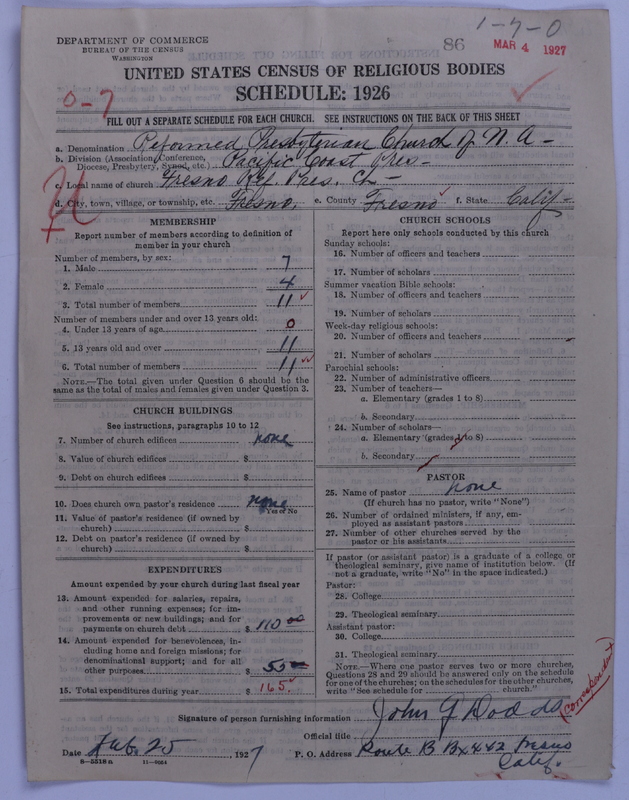 1-7-0
DEPARTMENT OF COMMERCE
BUREAU OF THE CENSUS
WASHINGTON
86
MAR 4 1927
UNITED STATES CENSUS OF RELIGIOUS BODIES
0-7
SCHEDULE: 1926
FILL OUT A SEPARATE SCHEDULE FOR EACH CHURCH. SEE INSTRUCTIONS ON THE BACK OF THIS SHEET
a. Denomination Reformed Presbyterian Church of N. A-
b. Division (Association, Conference, Diocese, Presbytery, Synod, etc.) Pacific Coast Pres-
c. Local name of church Fresno Ref. Pres. Ch-
d. City, town, village, or township, etc. Fresno. e. County Fresno f. State Calif-
MEMBERSHIP
Report number of members according to definition of
member in your church
Number of members, by sex:
1. Male 7
2. Female 4
3. Total number of members 11
Number of members under and over 13 years old:
4. Under 13 years of age 0
5. 13 years old and over 11
6. Total number of members 11
NOTE.—The total given under Question 6 should be the
same as the total of males and females given under Question 3.
CHURCH BUILDINGS
See instructions, paragraphs 10 to 12
7. Number of church edifices none
8. Value of church edifices $
9. Debt on church edifices $
10. Does church own pastor's residence none
Yes or No
11. Value of pastor's residence (if owned by
church) $
12. Debt on pastor's residence (if owned by
church) $
EXPENDITURES
Amount expended by your church during last fiscal year
13. Amount expended for salaries, repairs,
and other running expenses; for im-
provements or new buildings; and for
payments on church debt $ 110 00
14. Amount expended for benevolences, in-
cluding home and foreign missions; for
denominational support; and for all
other purposes $ 55 00
15. Total expenditures during year $ 165.
CHURCH SCHOOLS
Report here only schools conducted by this church
Sunday schools:
16. Number of officers and teachers
17. Number of scholars
Summer vacation Bible schools:
18. Number of officers and teachers
19. Number of scholars
Week-day religious schools:
20. Number of officers and teachers
21. Number of scholars
Parochial schools:
22. Number of administrative officers
23. Number of teachers—
a. Elementary (grades 1 to 8)
b. Secondary
24. Number of scholars—
a. Elementary (grades 1 to 8)
b. Secondary
PASTOR
25. Name of pastor none
(If church has no pastor, write "None")
26. Number of ordained ministers, if any, em-
ployed as assistant pastors
27. Number of other churches served by the
pastor or his assistants
If pastor (or assistant pastor) is a graduate of a college or
theological seminary, give name of institution below. (If
not a graduate, write "No" in the space indicated.)
Pastor:
28. College
29. Theological seminary
Assistant pastor:
30. College
31. Theological seminary
NOTE.—Where one pastor serves two or more churches,
Questions 28 and 29 should be answered only on the schedule
for one of the churches; on the schedules for the other churches,
write "See schedule for church."
Signature of person furnishing information John G Dodds
(Correspondent)
Official title
Date Feb. 25 1927 P. O. Address Route B Bx 442 Fresno
Calif.
8-5518a 11-9064